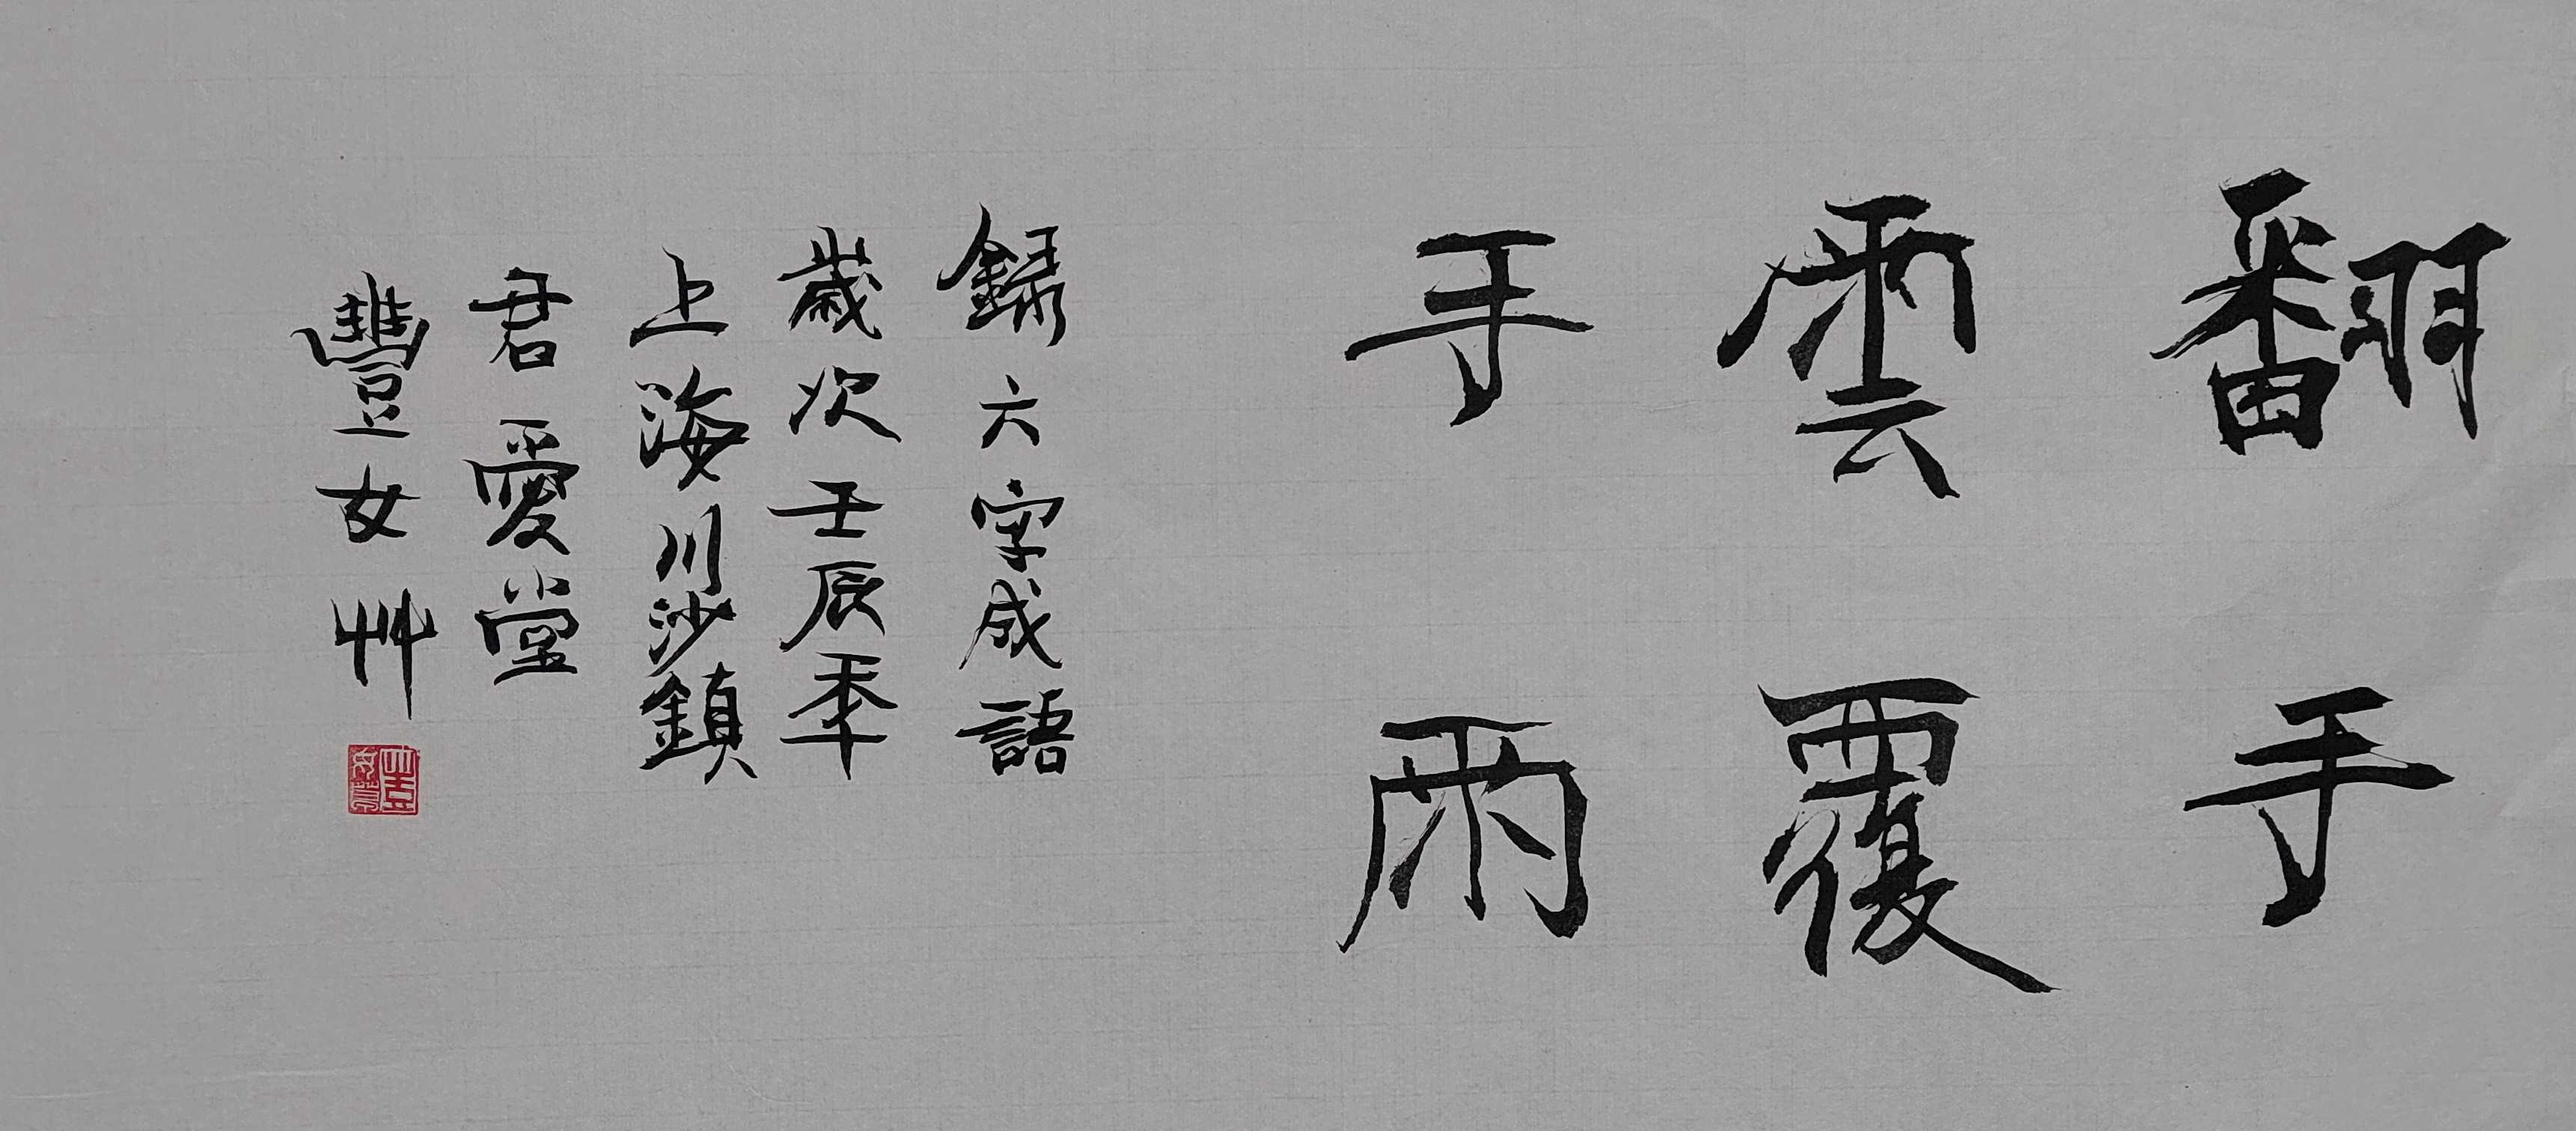 翻手
雲覆
手雨
錄六字成語
歲次壬辰年
上海川沙鎮
君愛堂
豐女艸